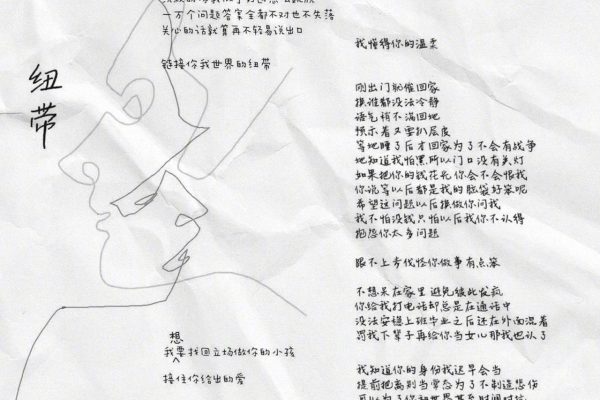 纽带
一万个问题答案全都不对也不失落
关心的话就算再不轻易说出口
链接你我世界的纽带
想
我要找回立场做你的小孩
接住你给出的爱
我懂得你的温柔
刚出门就催回家
换谁都没法冷静
语气稍不满回她
预示着又要扒层皮
等她睡了后才回家为了不会有战争
她知道我怕黑所以门口没有关灯
如果把你的钱花光你会不会恨我
你说等以后都是我的脑袋好笨呢
希望这问题以后换做你问我
我不怕没钱只怕以后我你不认得
抱怨你太多问题
跟不上步伐怪你做事有点笨
不想呆在家里避免彼此发疯
你给我打电话却总是在通话中
没法安稳上班毕业之后还在外面混着
罚我下辈子再给你当女儿那我也认了
我知道你的身份我迟早会当
提前把离别当常态为了不制造悲伤
可以为了你和世界甚至时间对抗